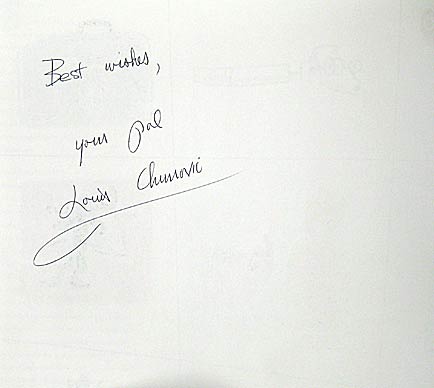 Best wishes,
your pal
Louis Chunovic